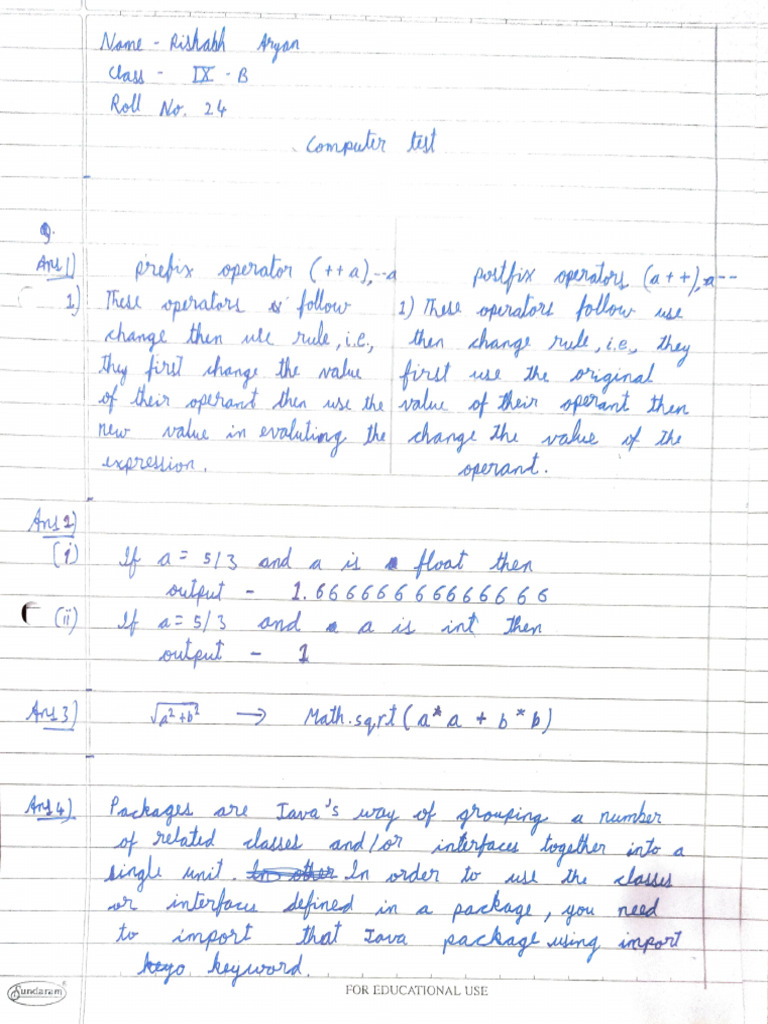 Name - Rishabh Aryan
Class - IX - B
Roll No. 24
Computer test
Q.
Ans 1) prefix operator (++a),--a postfix operators (a++),a--
1) These operators follow 1) These operators follow use
change then use rule, i.e., then change rule, i.e., they
they first change the value first use the original
of their operant then use the value of their operant then
new value in evaluting the change the value of the
expression. operant.
Ans 2)
(i) If a = 5/3 and a is float then
output - 1.66666666666666
(ii) If a = 5/3 and a is int then
output - 1
Ans 3) √a²+b² → Math.sqrt(a*a + b*b)
Ans 4) Packages are Java's way of grouping a number
of related classes and/or interfaces together into a
single unit. In other In order to use the classes
or interfaces defined in a package, you need
to import that Java package using import
keyo keyword.
Sundaram
FOR EDUCATIONAL USE